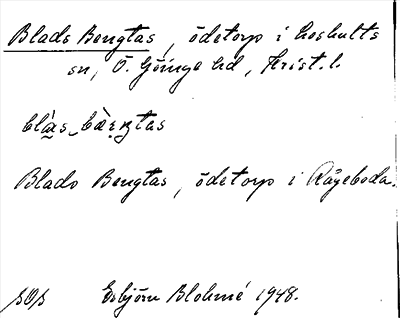 Blads Bengtas, ödetorp i Loshults
sn, Ö. Göinge hd, Krist. l.
Blads Bengtas, ödetorp i Rågeboda.
Esbjörn Blohmé 1948.